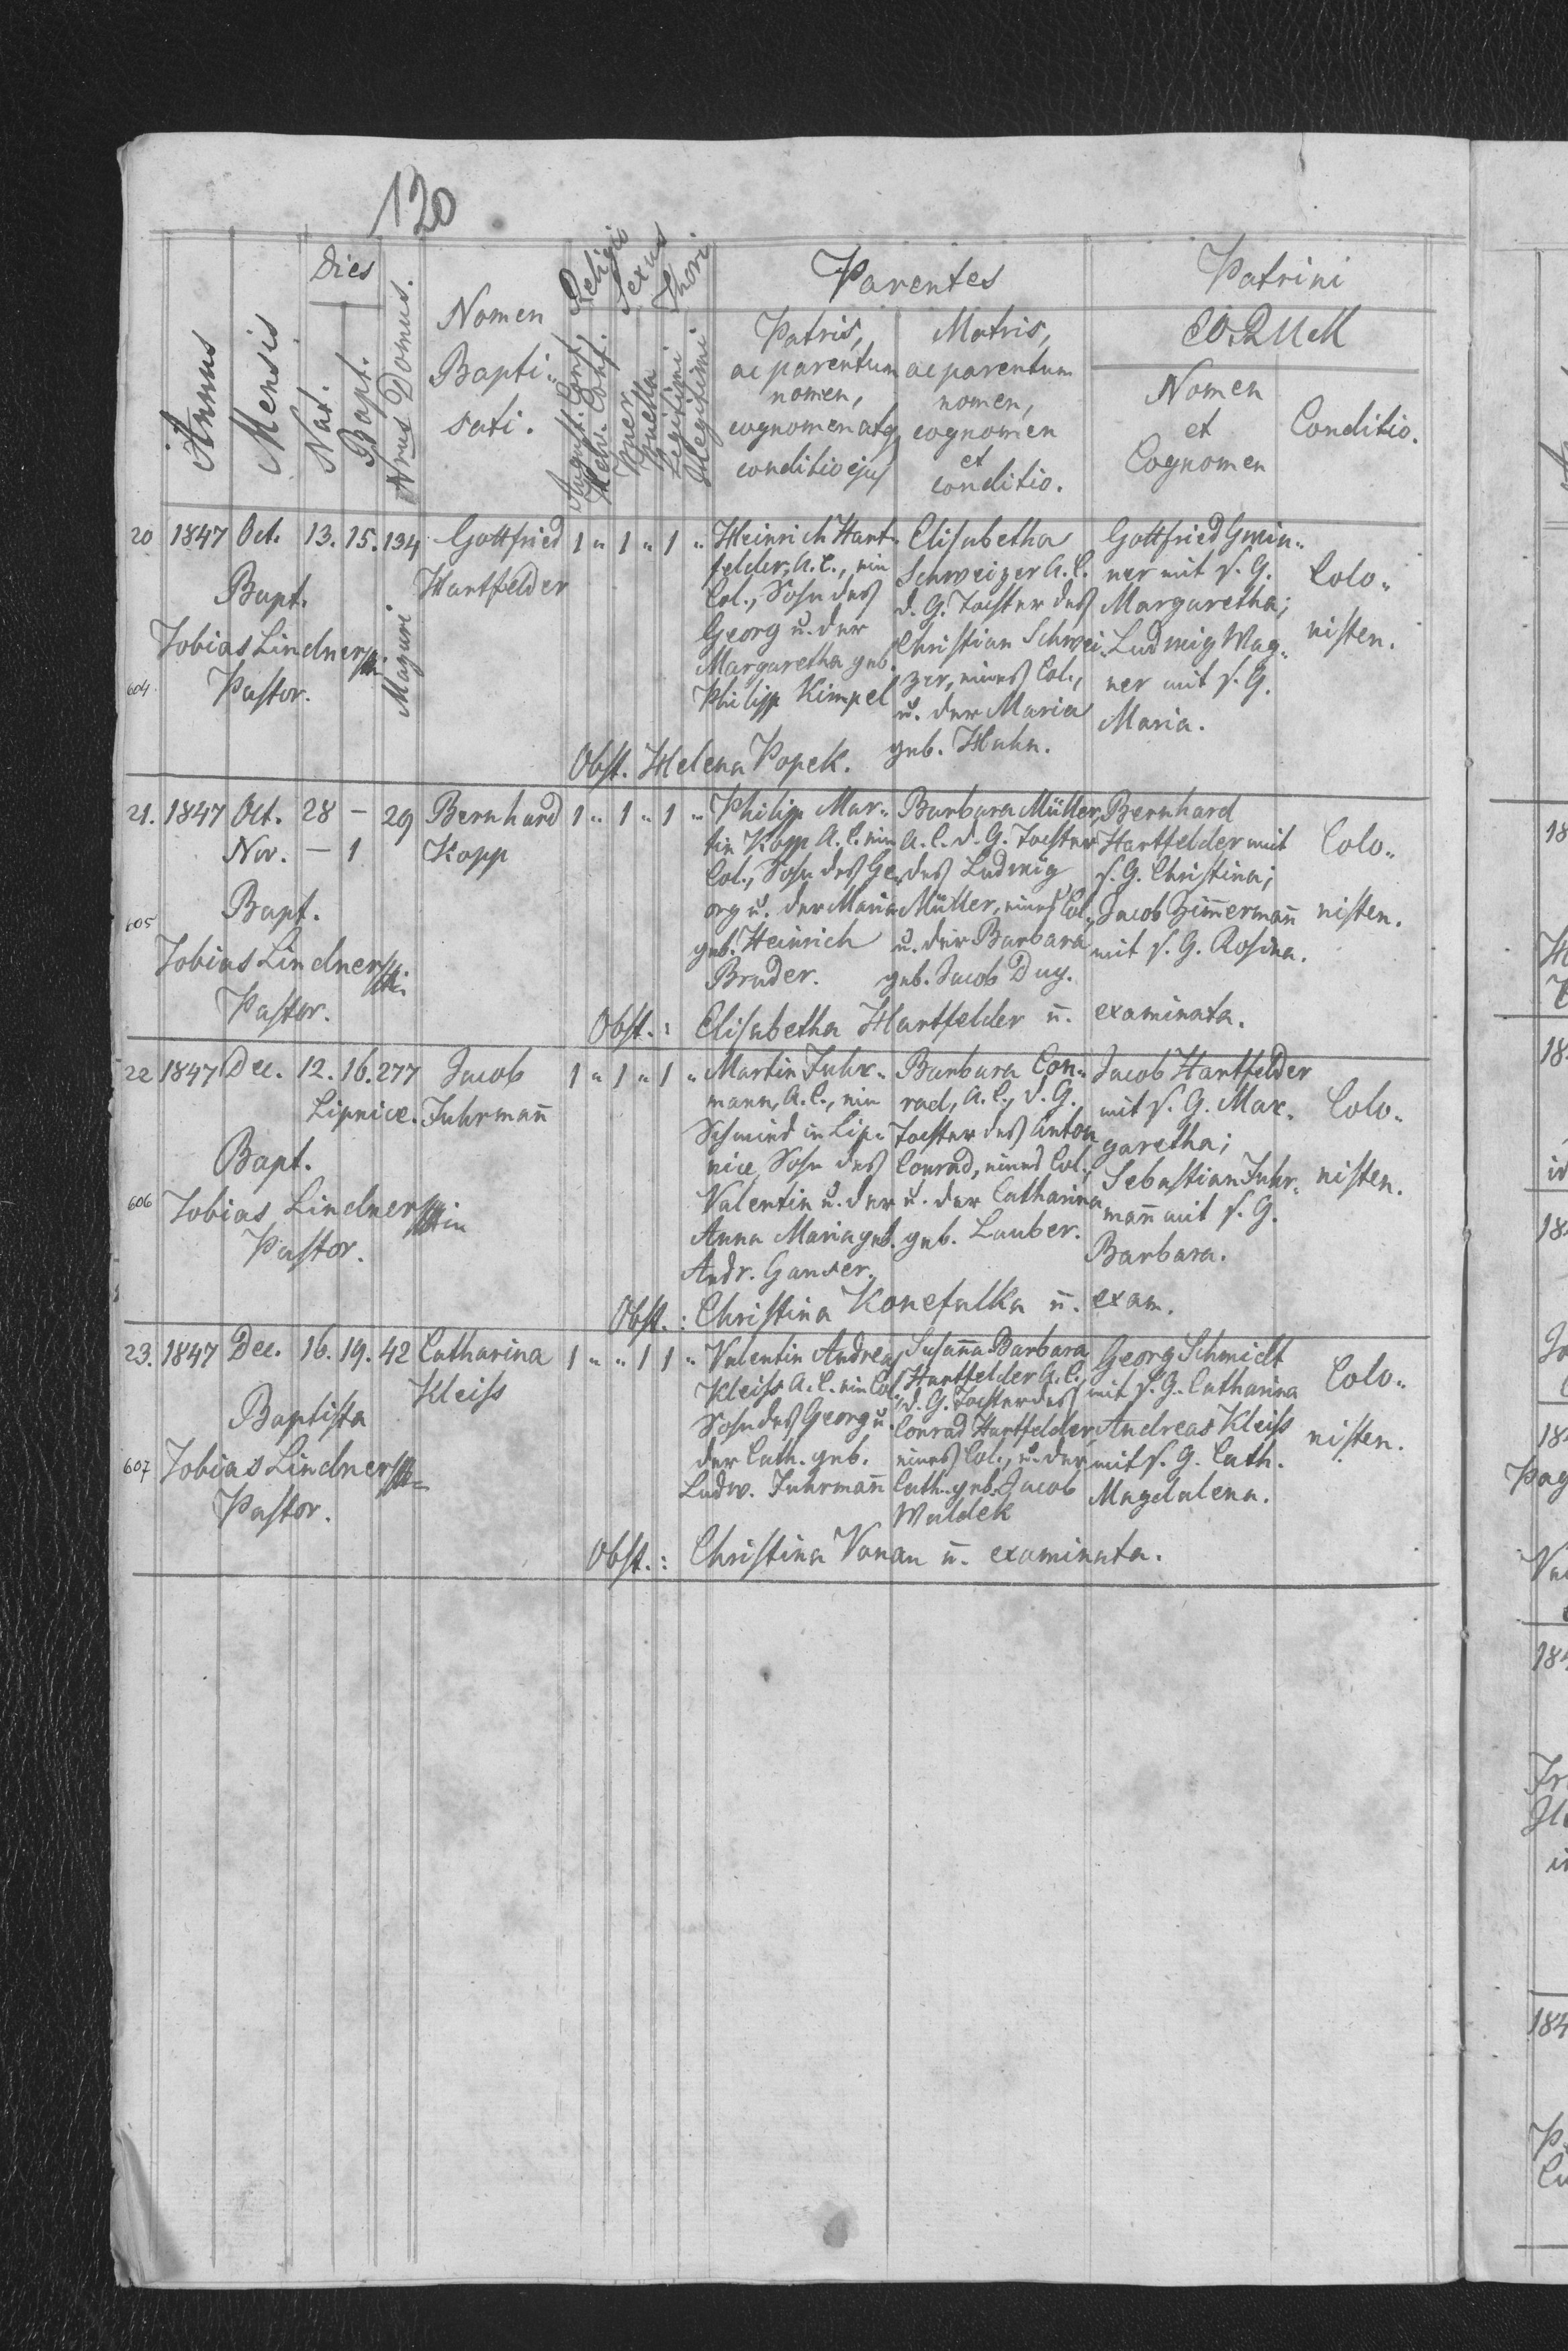 120
Annus
Mensis
Dies
Nat.
Bapt.
Nrus Domus.
Nomen
Bapti-
sati.
Religio
August. Conf.
Helv. Conf.
Sexus
Puer
Puella
Thori
Legitimi
Illegitimi
Parentes
Patris,
ac parentum
nomen,
cognomen atq
conditio ejus
Matris,
ac parentum
nomen,
cognomen
et
conditio.
Patrini
EORUM
Nomen
et
Cognomen
Conditio.
20 1847 Oct. 13. 15. 134 Gottfried 1 " 1 " 1 "
Hartfelder
Bapt.
Tobias Lindner
Pastor.
604
Mazuri
Heinrich Hart-
felder, A. C., ein
Col., Sohn des
Georg u. der
Margaretha geb.
Philipp Kimpel
Elisabetha
Schweizer A. C.
d. G. Tochter des
Christian Schwei-
zer, eines Col.,
u. der Maria
geb. Huhn.
Gottfried Gmin-
ner mit s. G.
Margaretha;
Ludwig Wag-
ner mit s. G.
Maria.
Colo-
nisten.
Obst. Helena Popek.
21. 1847 Oct. 28 – 29 Bernhard 1 " 1 " 1 "
Nov. – 1 Kopp
Bapt.
605
Tobias Lindner
Pastor.
Philipp Mar-
tin Kopp A. C. ein
Col., Sohn des Ge-
org u. der Maria
geb. Heinrich
Bruder.
Barbara Müller,
A. C. d. G. Tochter
des Ludwig
Müller, eines Col.,
u. der Barbara
geb. Jacob Duy.
Bernhard
Hartfelder mit
s. G. Christina;
Jacob Zimermañ
mit s. G. Rosina.
Colo-
nisten.
Obst.: Elisabetha Hartfelder u. examinata.
22 1847 Dec. 12. 16. 277 Jacob 1 " 1 " 1 "
Lipnice. Fuhrmañ
Bapt.
606 Tobias Lindner
Pastor.
Martin Fuhr-
mann, A. C., ein
Schmied in Lip-
nice, Sohn des
Valentin u. der
Anna Maria geb.
Andr. Ganser.
Barbara Con-
rad, A. C., d. G.
Tochter des Anton
Conrad, eines Col.,
u. der Catharina
geb. Lauber.
Jacob Hartfelder
mit s. G. Mar-
garetha;
Sebastian Fuhr-
mañ mit s. G.
Barbara.
Colo-
nisten.
Obst.: Christina Konefalka u. exam.
23. 1847 Dec. 16. 19. 42 Catharina 1 " " 1 1 "
Kleiss
Baptista
607 Tobias Lindner
Pastor.
Valentin Andreas
Kleiss A. C. ein Col.
Sohn des Georg u.
der Cath. geb.
Ludw. Fuhrmañ
Susaña Barbara
Hartfelder A. C.,
d. G. Tochter des
Conrad Hartfelder,
eines Col., u. der
Cath. geb. Jacob
Waldek
Georg Schmidt
mit s. G. Catharina
Andreas Kleiss
mit s. G. Cath.
Magdalena.
Colo-
nisten.
Obst.: Christina Vanau u. examinata.